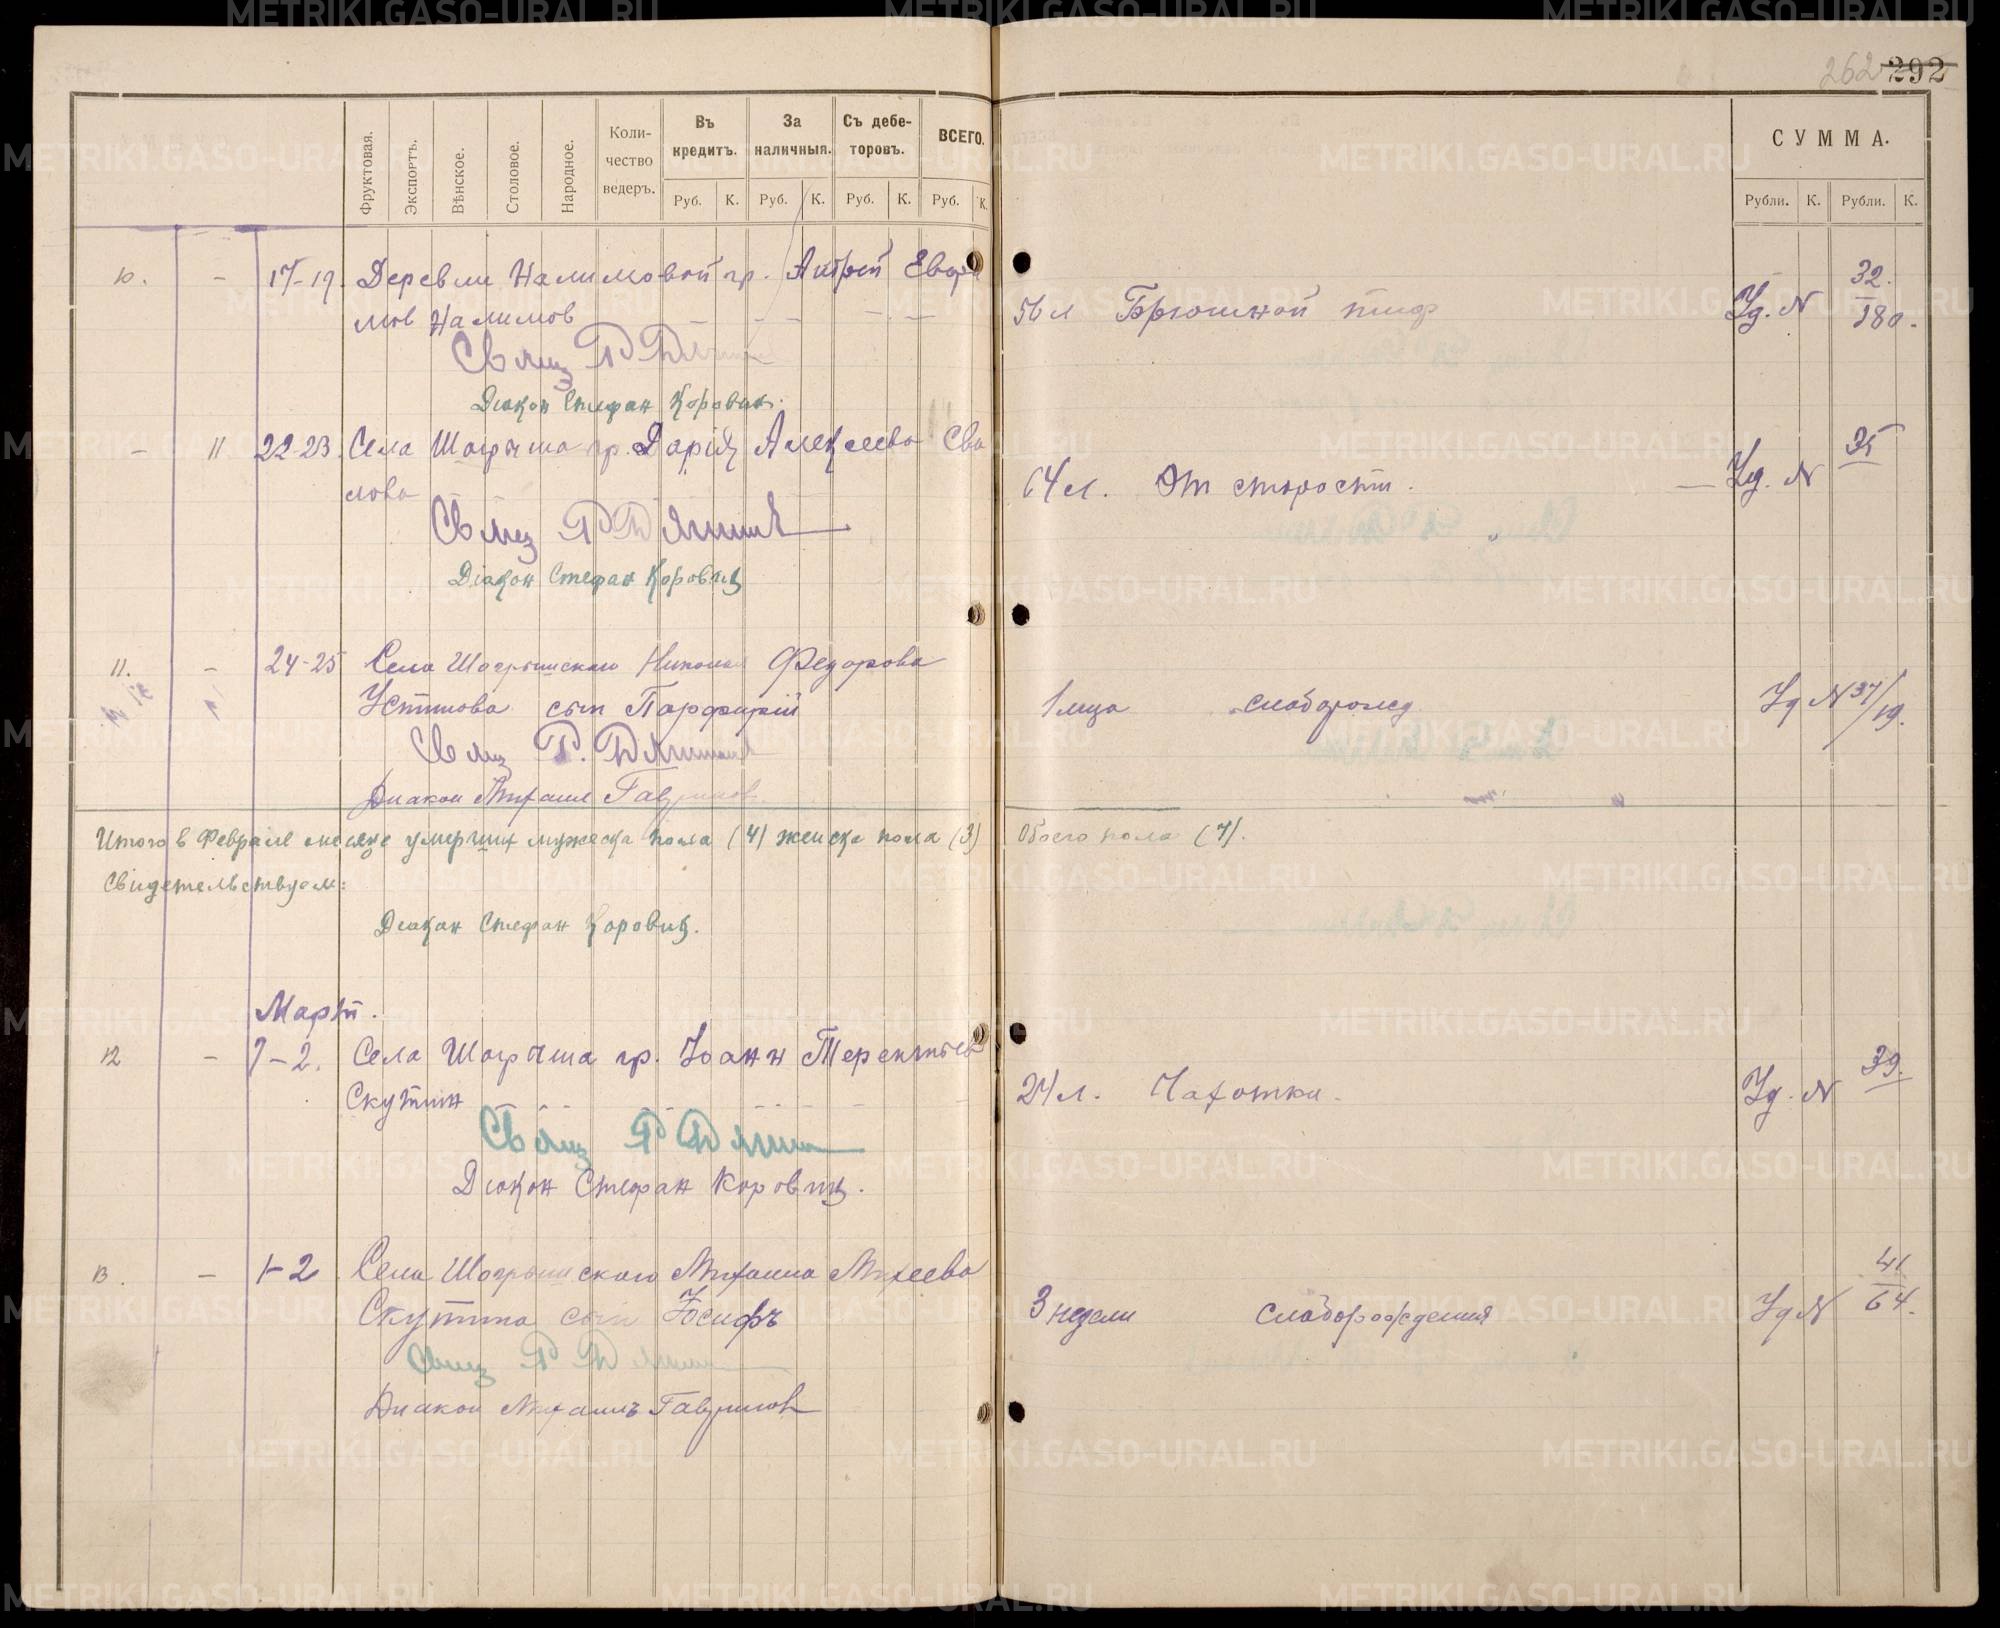 262 292
Фруктовая. Экспортъ. Вѣнское. Столовое. Народное. Коли-чество ведеръ. Въ кредитъ. За наличныя. Съ дебе-торовъ. ВСЕГО.
Руб. К. Руб. К. Руб. К. Руб. К.
СУММА.
Рубли. К. Рубли. К.
10. - 17-19. Деревни Налимовой гр.
мов Налимов 56 л Брюшной тиф Уд. N 32. / 180.
Свящ
Диакон Стефан Коровин.
- 11 22-23. Села Шогрыша гр. Дарія Алексеева
лова 64 л. От старости. Уд. N 35
Свящ
Діакон Стефан Коровин
11. - 24-25 Села Шогрышскаго Николая Федорова
Устинова сын Парфирий 1 мца слаборожд Уд N 37/19.
Свящ
Диакон Михаил Гаврилов
Итого в Феврале месяце умерших мужеска пола (4) женска пола (3) Обоего пола (7).
Свидетельствуем:
Диакон Стефан Коровин.
Март.
12 - 1-2. Села Шогрыша гр. Іоанн Терентьев
Скутин 24 л. Чахотка. Уд. N 39.
Свящ
Диакон Стефан Коровин.
13. - 1-2 Села Шогрышского Михаила Михеева
Скутина сын Іосифъ 3 недели слаборождения Уд N 41 / 64.
Свящ
Диакон Михаилъ Гаврилов
METRIKI.GASO-URAL.RU